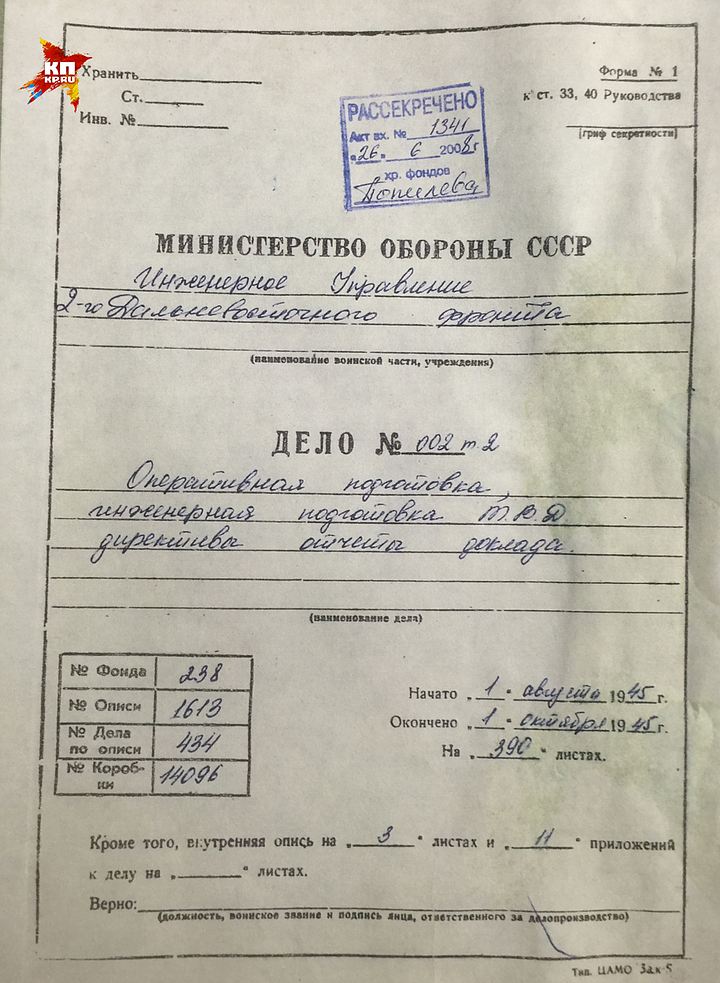 КП
KP.RU
Хранить
Ст.
Инв. №
Форма № 1
к ст. 33, 40 Руководства
(гриф секретности)
РАССЕКРЕЧЕНО
Акт вх. № 1341
"26" 6 2008 г
хр. фондов
МИНИСТЕРСТВО ОБОРОНЫ СССР
Инженерное Управление
2-го Дальневосточного фронта
(наименование воинской части, учреждения)
ДЕЛО № 002 т.2
Оперативная подготовка,
инженерная подготовка Т.В.Д
директивы отчеты доклада.
(наименование дела)
№ Фонда 238
№ Описи 1613
№ Дела по описи 434
№ Короб-ки 14096
Начато „1" августа 1945 г.
Окончено „1" октября 1945 г.
На „390" листах.
Кроме того, внутренняя опись на „3" листах и „11" приложений
к делу на „ " листах.
Верно:
(должность, воинское звание и подпись лица, ответственного за делопроизводство)
Тип. ЦАМО Зак-5